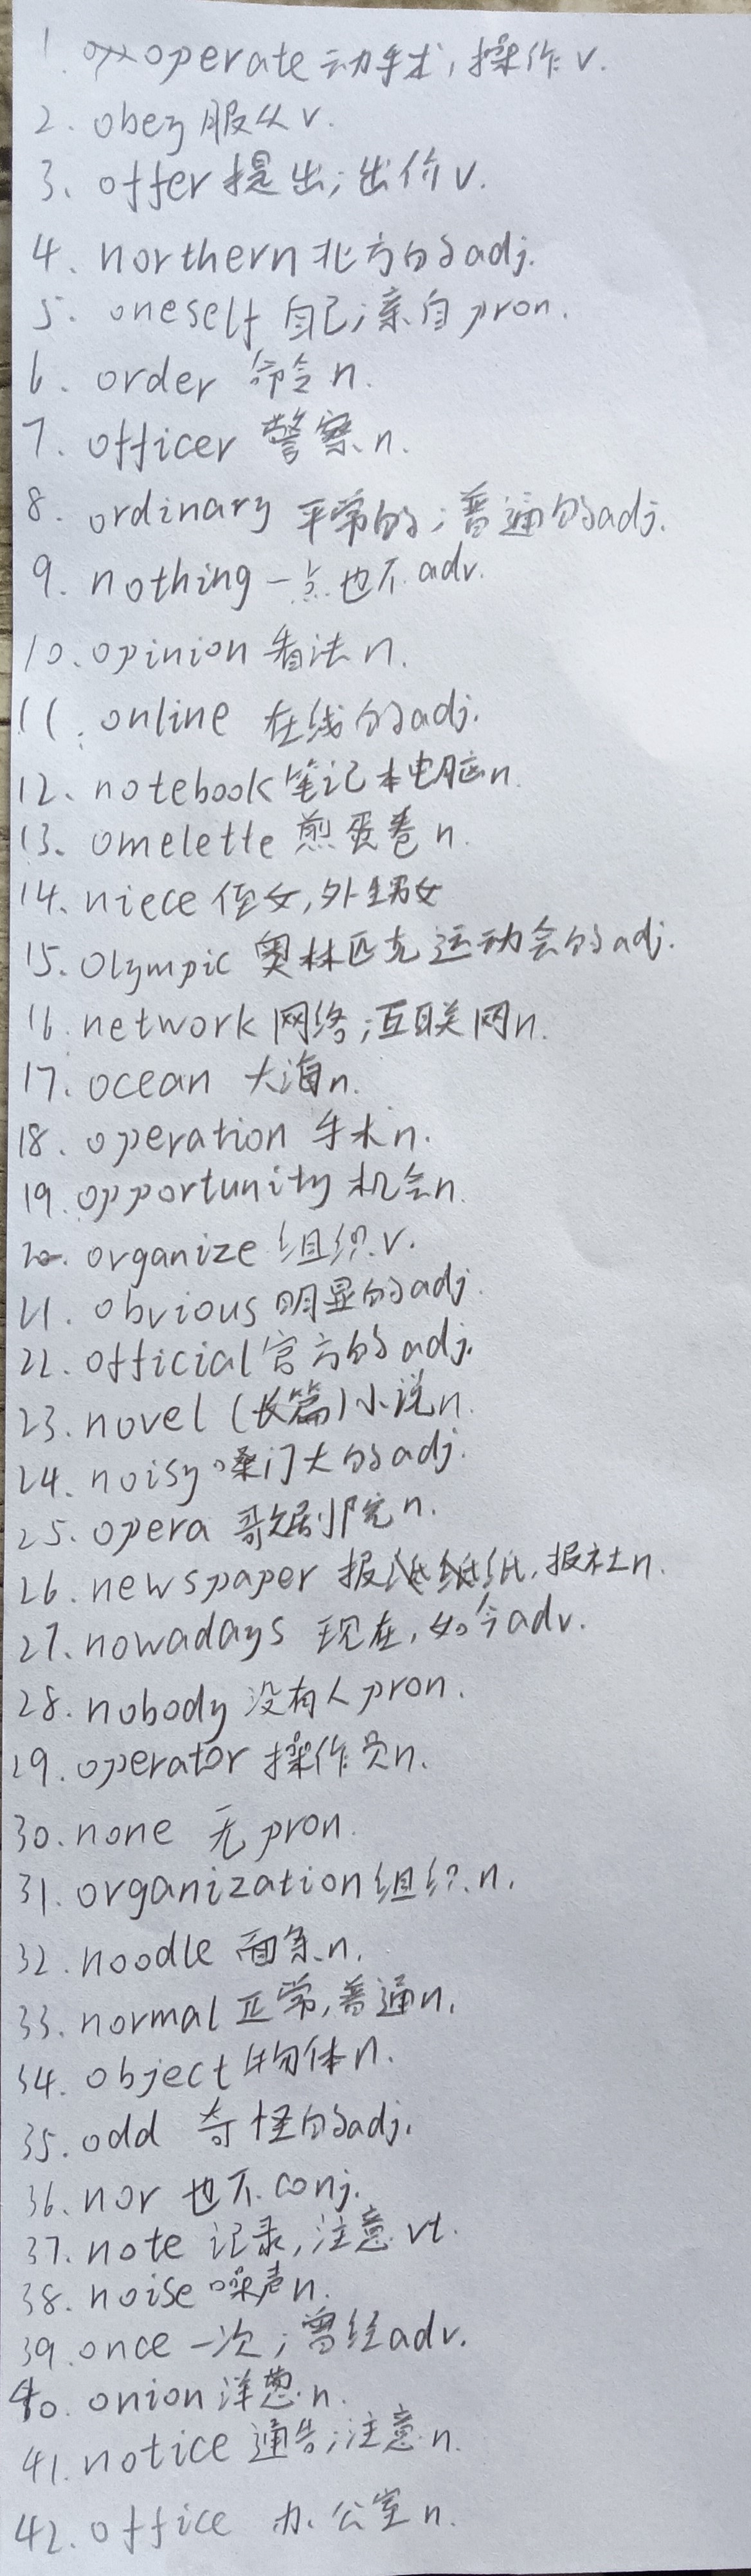 1. operate 动手术,操作 v.
2. obey 服从 v.
3、offer 提出;出价 v.
4、northern 北方的 adj.
5. oneself 自己;亲自 pron.
6. order 命令 n.
7. officer 警察 n.
8. ordinary 平常的;普通的 adj.
9. nothing 一点也不 adv.
10、opinion 看法 n.
11. online 在线的 adj.
12、notebook 笔记本电脑 n.
13、omelette 煎蛋卷 n.
14、niece 侄女,外甥女
15. Olympic 奥林匹克运动会的 adj.
16. network 网络;互联网 n.
17. ocean 大海 n.
18. operation 手术 n.
19. opportunity 机会 n.
20. organize 组织 v.
21. obvious 明显的 adj.
22. official 官方的 adj.
23. novel (长篇)小说 n.
24. noisy 嗓门大的 adj.
25. opera 歌剧院 n.
26. newspaper 报纸,报社 n.
27. nowadays 现在,如今 adv.
28. nobody 没有人 pron.
29. operator 操作员 n.
30. none 无 pron.
31. organization 组织 n.
32. noodle 面条 n.
33. normal 正常,普通 n.
34. object 物体 n.
35. odd 奇怪的 adj.
36. nor 也不 conj.
37. note 记录,注意 vt.
38. noise 噪声 n.
39. once 一次;曾经 adv.
40. onion 洋葱 n.
41. notice 通告;注意 n.
42. office 办公室 n.